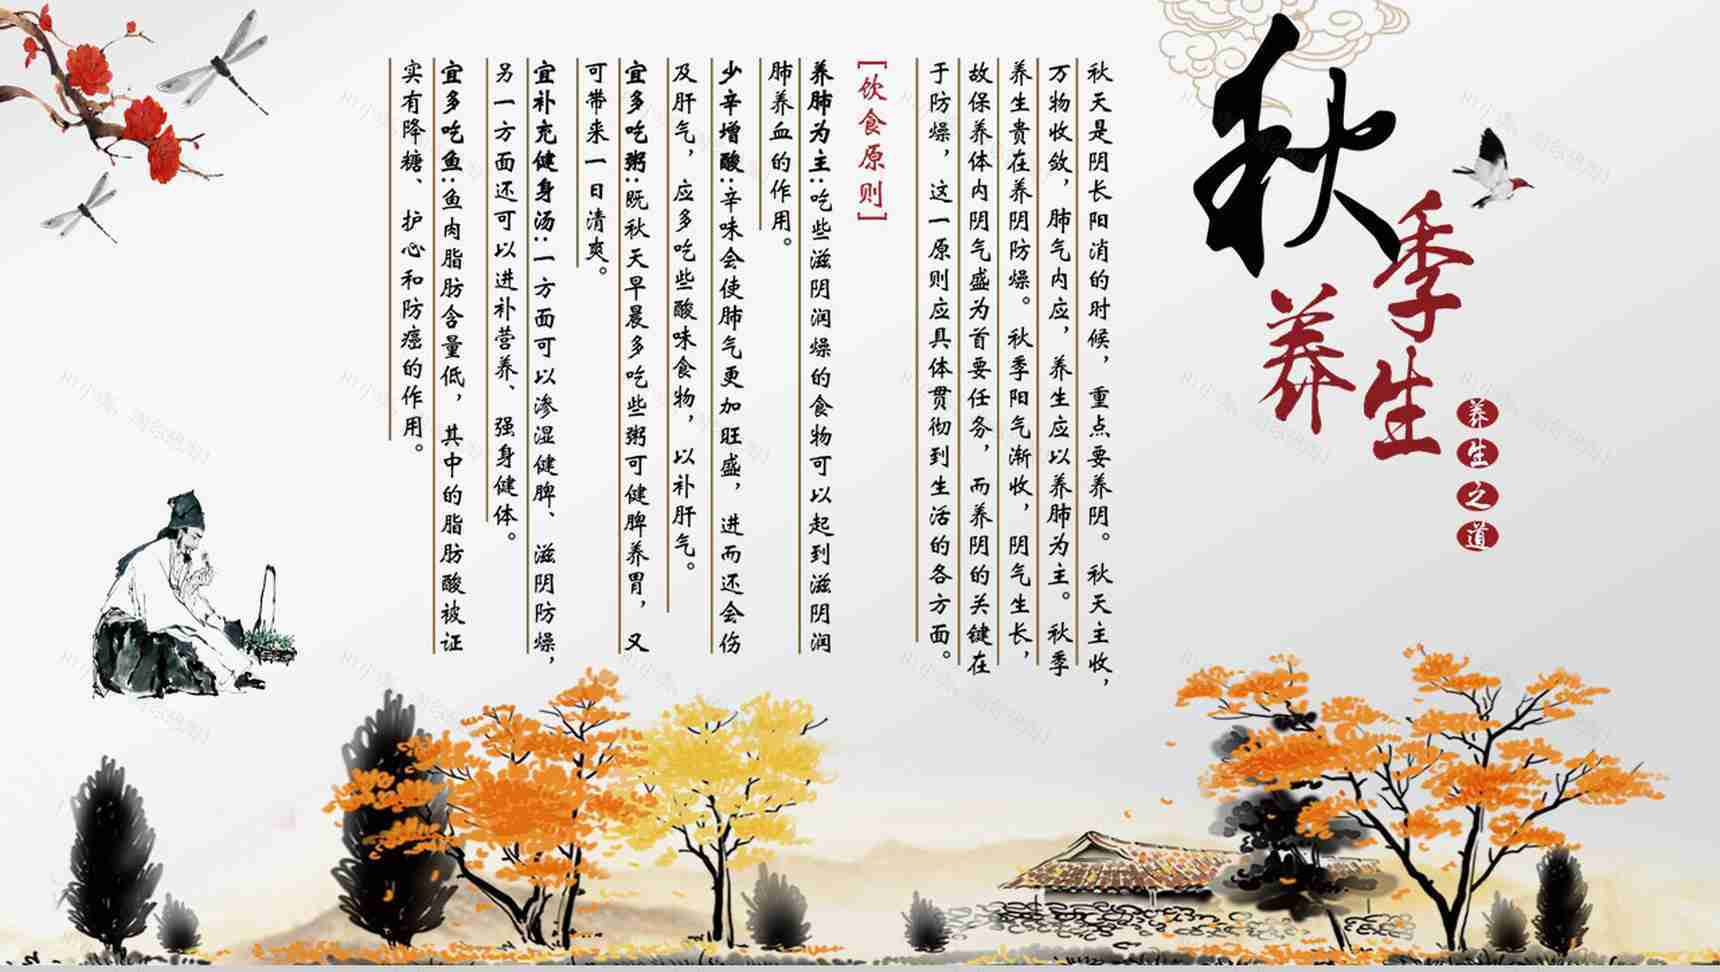 秋季
养生
养生之道
秋天是阴长阳消的时候，重点要养阴。秋天主收，
万物收敛，肺气内应，养生应以养肺为主。秋季
养生贵在养阴防燥。秋季阳气渐收，阴气生长，
故保养体内阴气盛为首要任务，而养阴的关键在
于防燥，这一原则应具体贯彻到生活的各方面。
[饮食原则]
养肺为主：吃些滋阴润燥的食物可以起到滋阴润
肺养血的作用。
少辛增酸：辛味会使肺气更加旺盛，进而还会伤
及肝气，应多吃些酸味食物，以补肝气。
宜多吃粥：既秋天早晨多吃些粥可健脾养胃，又
可带来一日清爽。
宜补充健身汤：一方面可以渗湿健脾、滋阴防燥，
另一方面还可以进补营养、强身健体。
宜多吃鱼：鱼肉脂肪含量低，其中的脂肪酸被证
实有降糖、护心和防癌的作用。